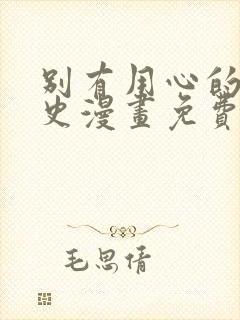 别有用心的
史漫畫免費
毛思倩